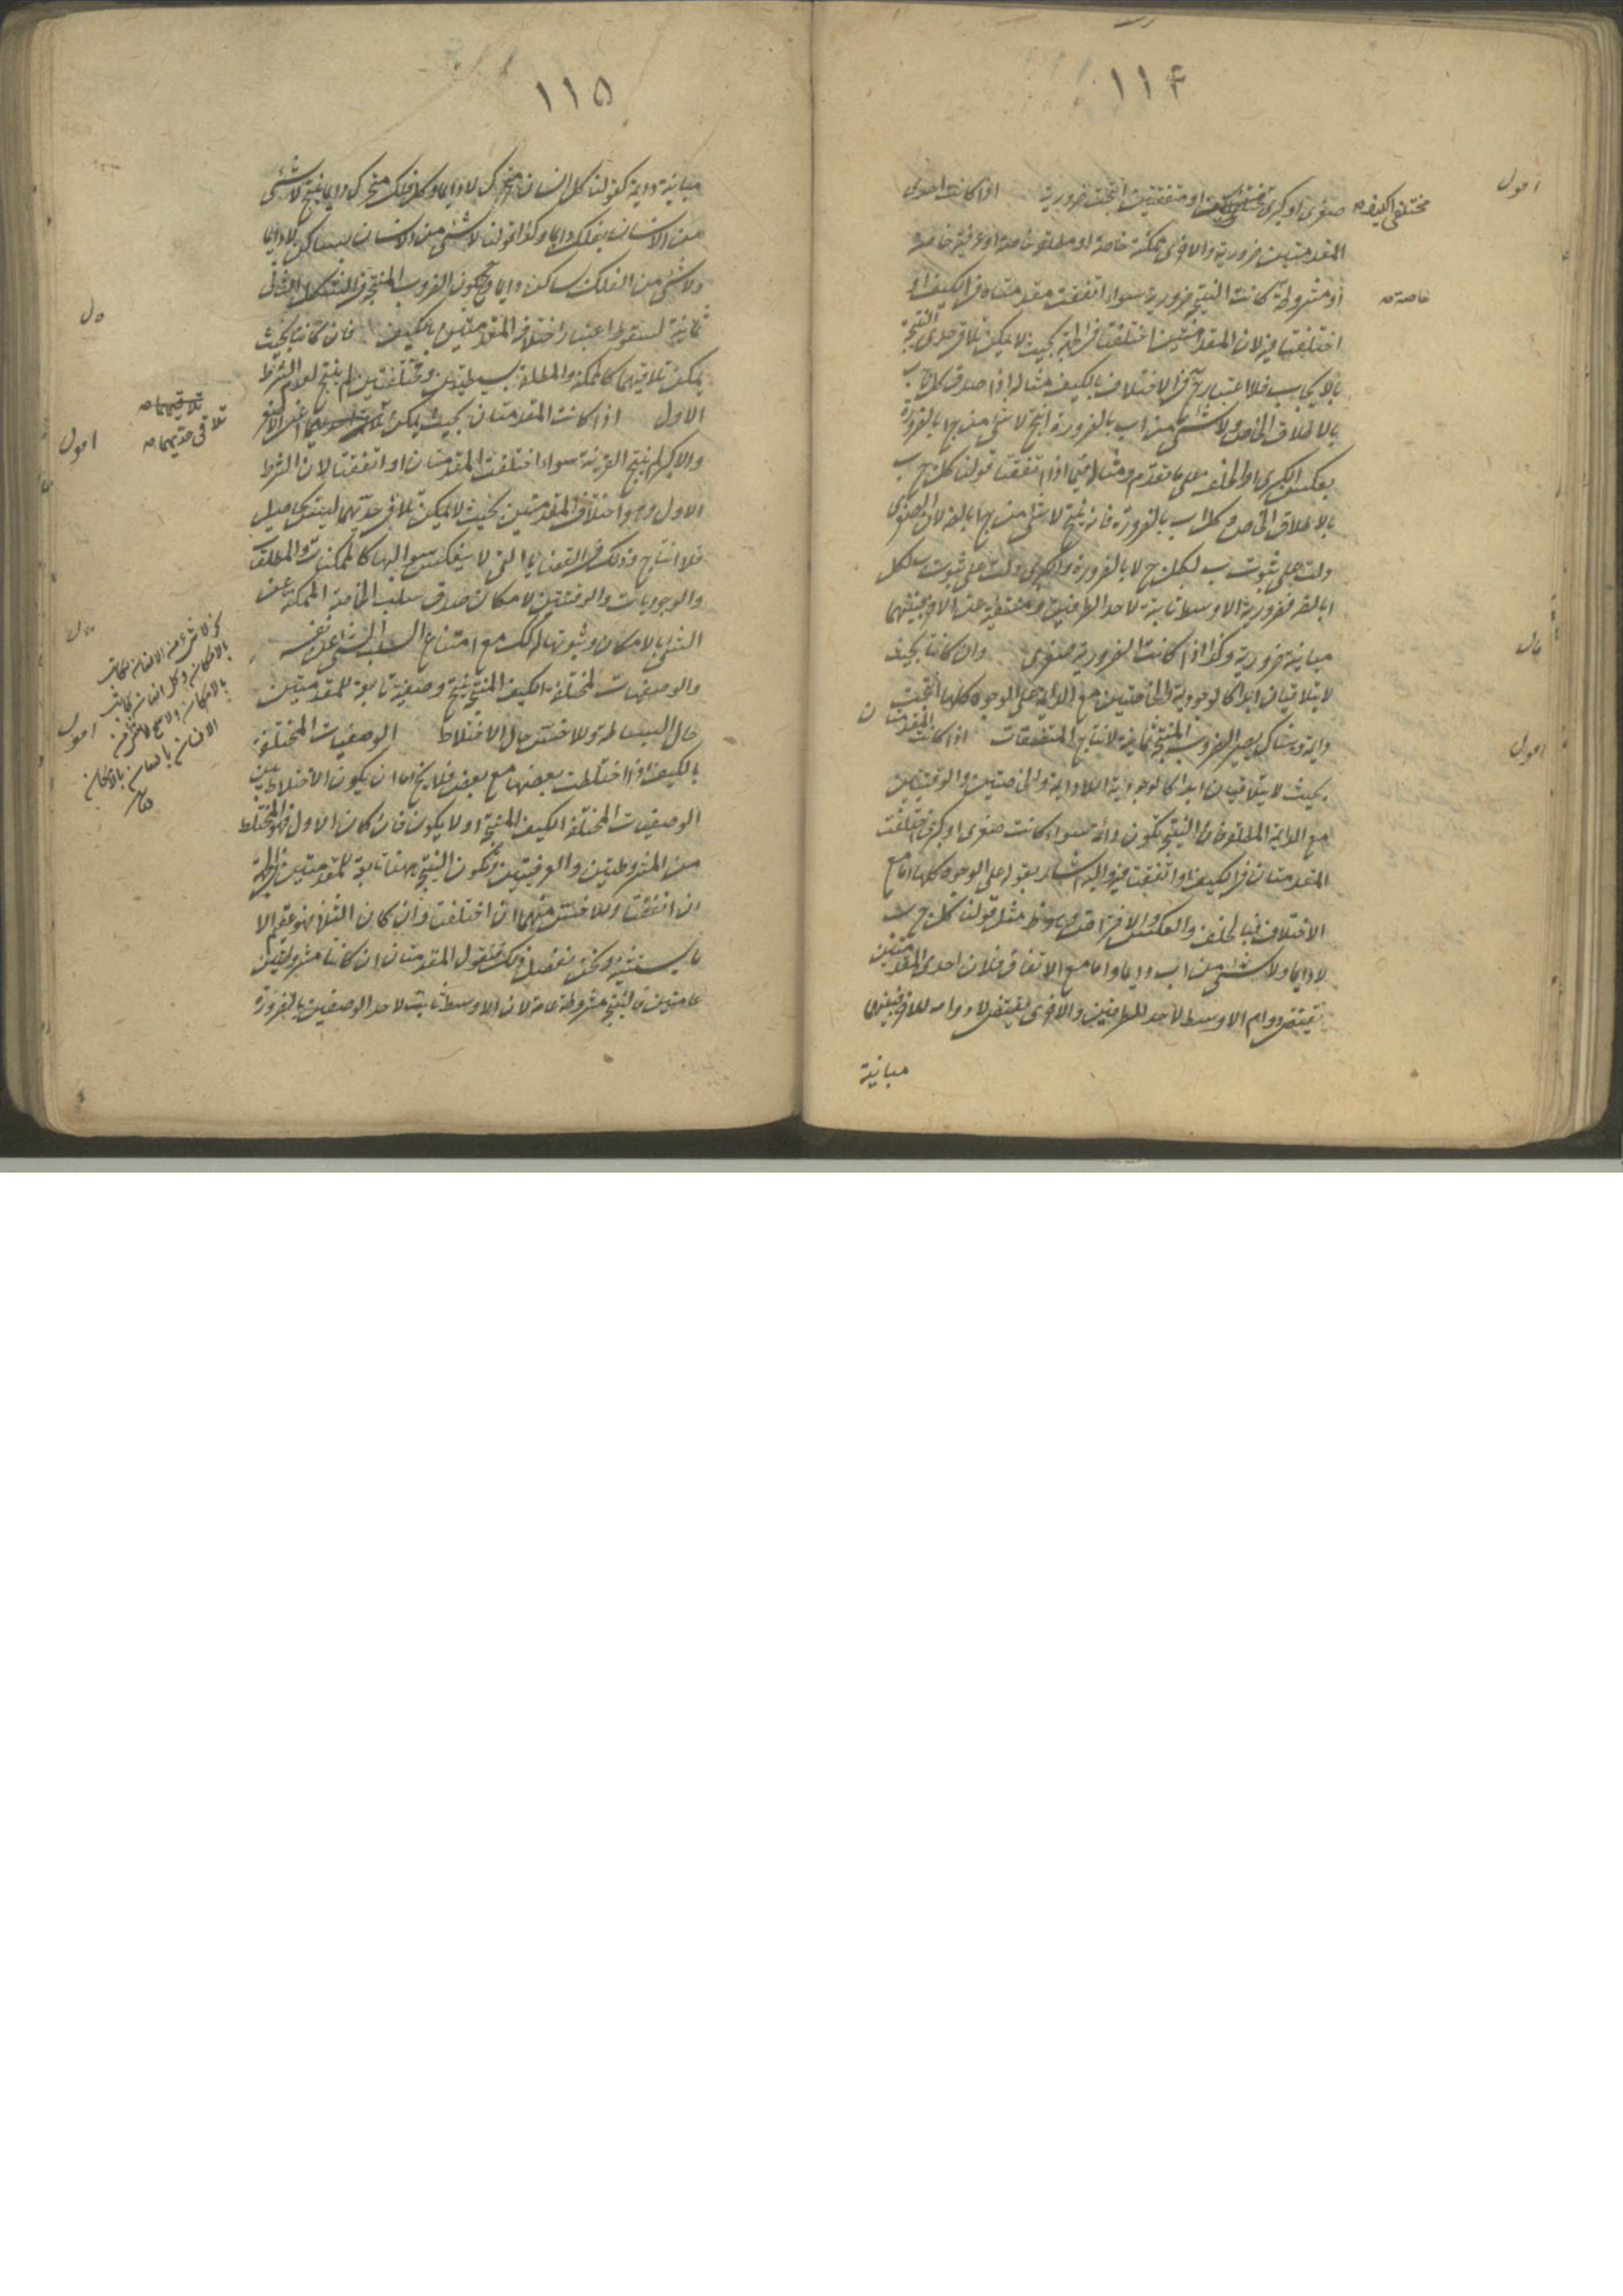 ١١۴
اقول
صغرى او كبرى او متفقتين انتجت ضرورية اذا كانت احدى
مختلفى الكيف صح
المقدمتين ضرورية والاخرى ممكنة خاصة او مطلقة خاصة او عرفية خاصة
او مشروطة كانت النتيجة ضرورية سواء اتفقت مقدمتاه فى الكيف او
خاصة صح
اختلفتا فيه لان المقدمتين اختلفتا فى الجهة بحيث لا يمكن تلاقى حدى النتيجة
بالايجاب فلا اعتبار ح فى الاختلاف بالكيف مثاله اذا صدق كل ج ب
بالاطلاق الخاص ولا شئ من ا ب بالضرورة انتج لا شئ من ج ا بالضرورة
بعكس الكبرى او الخلف على ما تقدم ومثاله فيما اذا اتفقتا قولنا كل ج ب
بالاطلاق الخاص وكل ا ب بالضرورة فانه ينتج لا شئ من ج ا بالضرورة لان الصغرى
دلت على ثبوت ب لكل ج لا بالضرورة والكبرى دلت على ثبوت ب لكل
ا بالضرورة فضرورية الاوسط ثابتة لاحد الطرفين ومنتفية عن الاخر فبينهما
مباينة ضرورية وكذا اذا كانت الضرورية صغرى وان كانتا بحيث
قال
لا يتلاقيان ابدا كالوجودية والخاصتين مع الدائمة على الوجوه كلها انتجت
دائمة وهناك يصير الضروب المنتجة ثمانية لانتاج المتفقات اذا كانت المقدمتان
اقول
بحيث لا يتلاقيان ابدا كالوجودية اللادائمة والخاصتين والوقتيتين
مع الدائمة المطلقة فان النتيجة تكون دائمة سواء كانت صغرى او كبرى اختلفت
المقدمتان فى الكيف او اتفقتا فيه واليه اشار بقوله على الوجوه كلها اما مع
الاختلاف فبالخلف والعكس والافتراض وهو ظ مثل قولنا كل ج ب
لا دايما ولا شئ من ا ب دايما واما مع الاتفاق فلان احدى المقدمتين
يقتضى دوام الاوسط لاحد الطرفين والاخرى يقتضى لا دوامه للاخر فبينهما
مباينة
١١۵
مباينة دايمة كقولنا كل انسان متحرك لا دايما وكل فلك متحرك دايما ينتج لا شئ
من الانسان بفلك دايما وكذا قولنا لا شئ من الانسان بساكن لا دايما
ولا شئ من الفلك ساكن دايما وح يكون الضروب المنتجة فى الشكل الثانى
ثمانية لسقوط اعتبار اختلاف المقدمتين بالكيف فان كانتا بحيث
قال
يمكن تلاقيهما كالممكنة والمطلقة بسيطتين ومختلفتين لم ينتج لعدم الشرط
تلاقيهما صح
الاول اذا كانت المقدمتان بحيث يمكن اعنى الاصغر
تلاقى حديهما صح
اقول
والاكبر لم ينتج القرينة سواء اختلفت المقدمتان او اتفقتا لان الشرط
الاول وهو اختلاف المقدمتين بحيث لا يمكن تلاقى حديهما ليس بحاصل
فلا انتاج وذلك فى القضايا التى لا ينعكس سوالبها كالممكنات والمطلقات
والوجوديات والوقتيتين لامكان صدق سلب الخاصة الممكنة عن
الشئ بالامكان وثبوتها له كذلك مع امتناع السلب الشئ عن نفسه
كقولنا لا شئ من الانسان بكاتب
بالامكان وكل انسان كاتب
بالامكان ولا يصح لا شئ من
الانسان بانسان بالامكان
قال
والوصفيات المختلفة الكيف المنتجة ينتج وصفية تابعة للمقدمتين
حال البساطة وللاخس حال الاختلاط الوصفيات المختلفة
اقول
بالكيف اذا اختلطت بعضها مع بعض فلا يخ اما ان يكون الاختلاط بين
الوصفيات المختلفة الكيف المنتجة او لا يكون فان كان الاول فهو المختلط
من المشروطتين والعرفيتين وتكون النتيجة ههنا تابعة للمقدمتين فى الجهة
ان اتفقتا وللاخس منهما ان اختلفتا وان كان الثانى فهو عقيم الا
ما يستثنيه ونحن نفصل ذلك فنقول المقدمتان ان كانتا مشروطتين
عامتين فالنتيجة مشروطة عامة لان الاوسط ثابت لاحد الوصفين بالضرورة